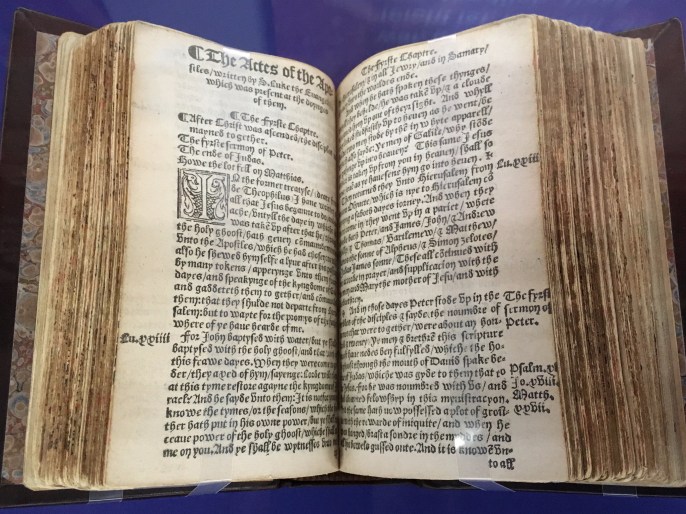 The Actes of the Apo
stles/written by S. Luke the Euangelist
which was present at the doynges
of them.
The Fyrste Chapter.
After Christ was ascended/the disciples
mayned to gether.
The fyrste sermon of Peter.
The ende of Judas.
Howe the lot fell on Matthias.
IN the former treatyse/deare
Theophilus/I haue
all that Jesus beganne to do
ache/vntyll the daye in whi
was takē vp/after that he
the holy ghoost/hath geuen cōmaun
vnto the Apostles/whiche he had chosen
also he shewed hymselfe alyue after his
by many tokens/apperynge vnto them
dayes/and speakynge of the kyngdome of
and gaddereth them to gether/and cōmaū
them:that they shulde not departe from
salem:but to wayte for the promys of the
where of ye haue hearde of me.
Lu.xxiiii For John baptysed with water/but ye
baptysed with the holy ghoost/and that
this feawe dayes. When they were come
der/they axed of hym/sayinge: Lorde wilt
at this tyme restore agayne the kyngdom
rael? And he sayde vnto them: It is not
knowe the tymes/or the seasons/which the
ther hath put in his owne power/but ye shall
ceaue power of the holy ghoost/which shall
me on you. And ye shall be wytnesses vnto
The Fyrste Chaptre.
and in all Jewry/and in Samary/
worldes ende.
when he had spoken these thynges/
behelde/he was takē vp/& a cloude
hym vp out of their sight. And whyll
stedfastly vp to heuen as he went/be
men stode by thē in whyte apparell/
sayde: Ye men of Galile/why stōde
vp into heauen? This same Jesus
taken vp from you in heauen/shall so
as ye haue sene hym go into heuen.
returned they vnto Hierusalem from Lu.xxiiii
Olyuete/which is nye to Hierusalem cō
saboth dayes iorney. And when they
in/they went vp in a parler/where
Peter/and James/John/& Andrew
Thomas/Bartlemew/& Matthew/
sonne of Alpheus/& Simon zelotes/
James sonne/These all cōtinued with
in prayer/and supplicacion with the
and Mary the mother of Jesu/and with
And in those dayes Peter stode vp in the The fyrst
of the disciples & sayde/the noumbre of sermon of
were to gether/were about an hon- Peter.
Ye men & brethrē this scripture
nedes ben fulfylled/which: the ho-
through the mouth of Dauid spake be-
Judas/which was gyde to them that to Psalm.xl
For he was noumbred with vs/and Jo.xviii.
fellowship in this mynistracyon. Matth.
same hath now possessed a plot of groū- xxvii.
rewarde of iniquite/and when he
hanged/brast a sondre in the myddes/and
bowels gusshed oute. And it is knowē vn-
to all